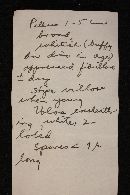 Pileus 1-5 cm
broad,
whitish (buffy
in age)
appressed fibrillose
± dry
Stipe yellow
when young
Volva
ing white 2-
lobed
Spores ± 9 µ
long